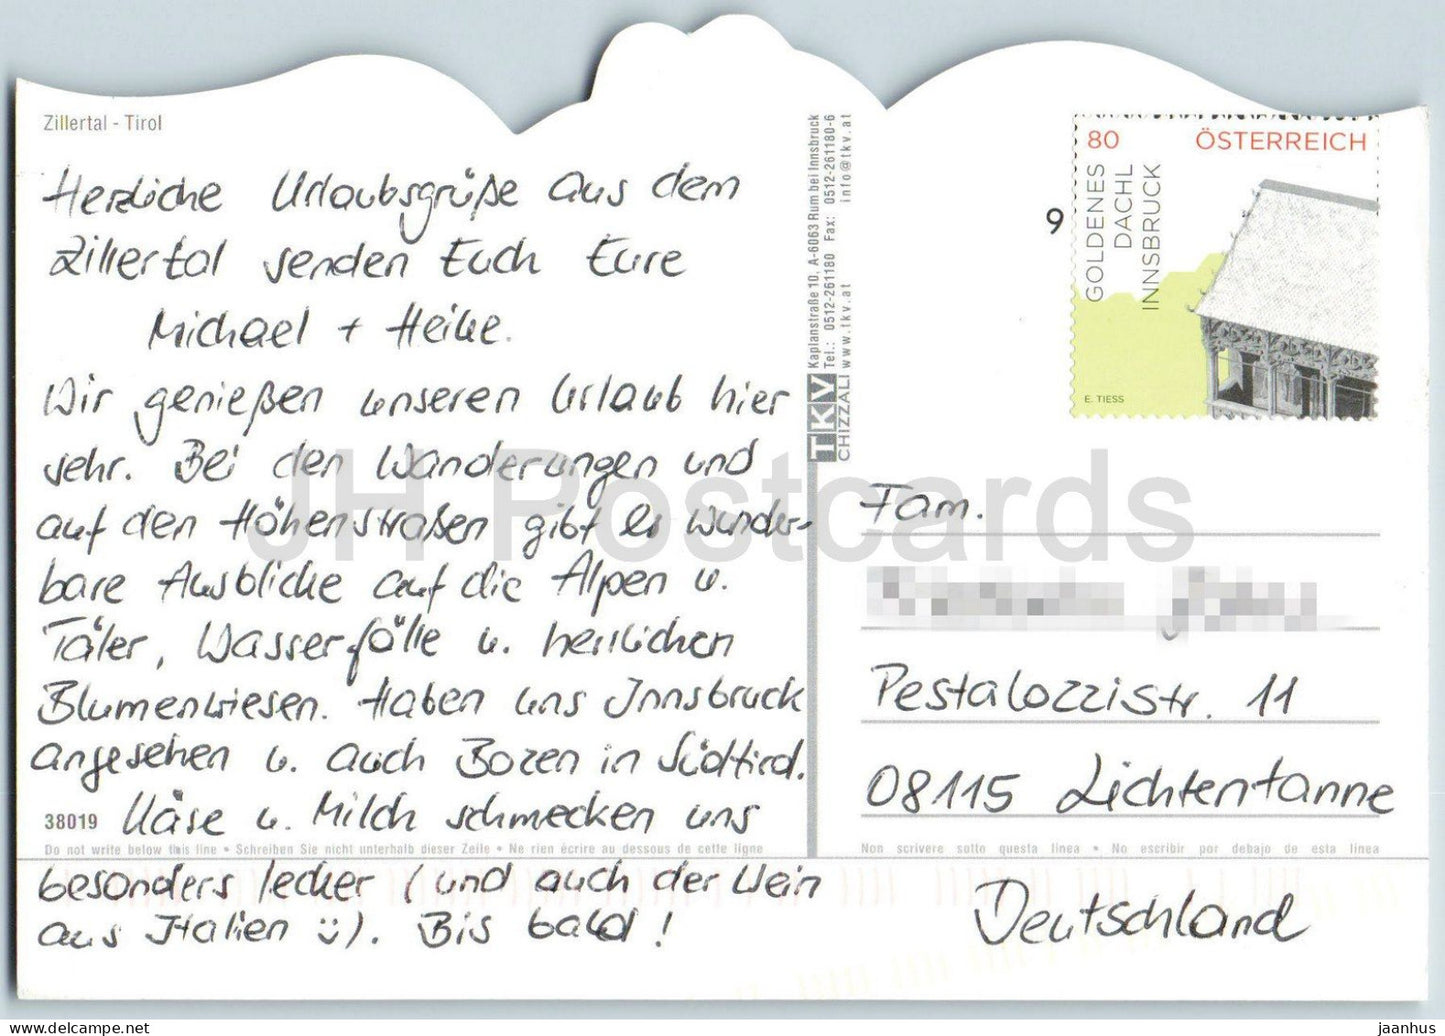 Zillertal - Tirol
Herzliche Urlaubsgrüße aus dem
Zillertal senden Euch Eure
Michael + Heike.
Wir genießen unseren Urlaub hier
sehr. Bei den Wanderungen und
auf den Höhenstraßen gibt es wunder-
bare Ausblicke auf die Alpen u.
Täler, Wasserfälle u. herrlichen
Blumenwiesen. Haben uns Innsbruck
angesehen u. auch Bozen in Südtirol.
38019 Käse u. Milch schmecken uns
Do not write below this line • Schreiben Sie nicht unterhalb dieser Zeile • Ne rien écrire au dessous de cette ligne
besonders lecker (und auch der Wein
aus Italien ü). Bis bald!
TKV
CHIZZALI
Kaplanstraße 10, A-6063 Rum bei Innsbruck
Tel.: 0512-261180 Fax: 0512-261180-6
www.tkv.at info@tkv.at
9
80 ÖSTERREICH
GOLDENES
DACHL
INNSBRUCK
E. TIESS
Fam.
Pestalozzistr. 11
08115 Lichtentanne
Non scrivere sotto questa linea • No escribir por debajo de esta linea
Deutschland
JH Postcards
jaanhus @ delcampe.net